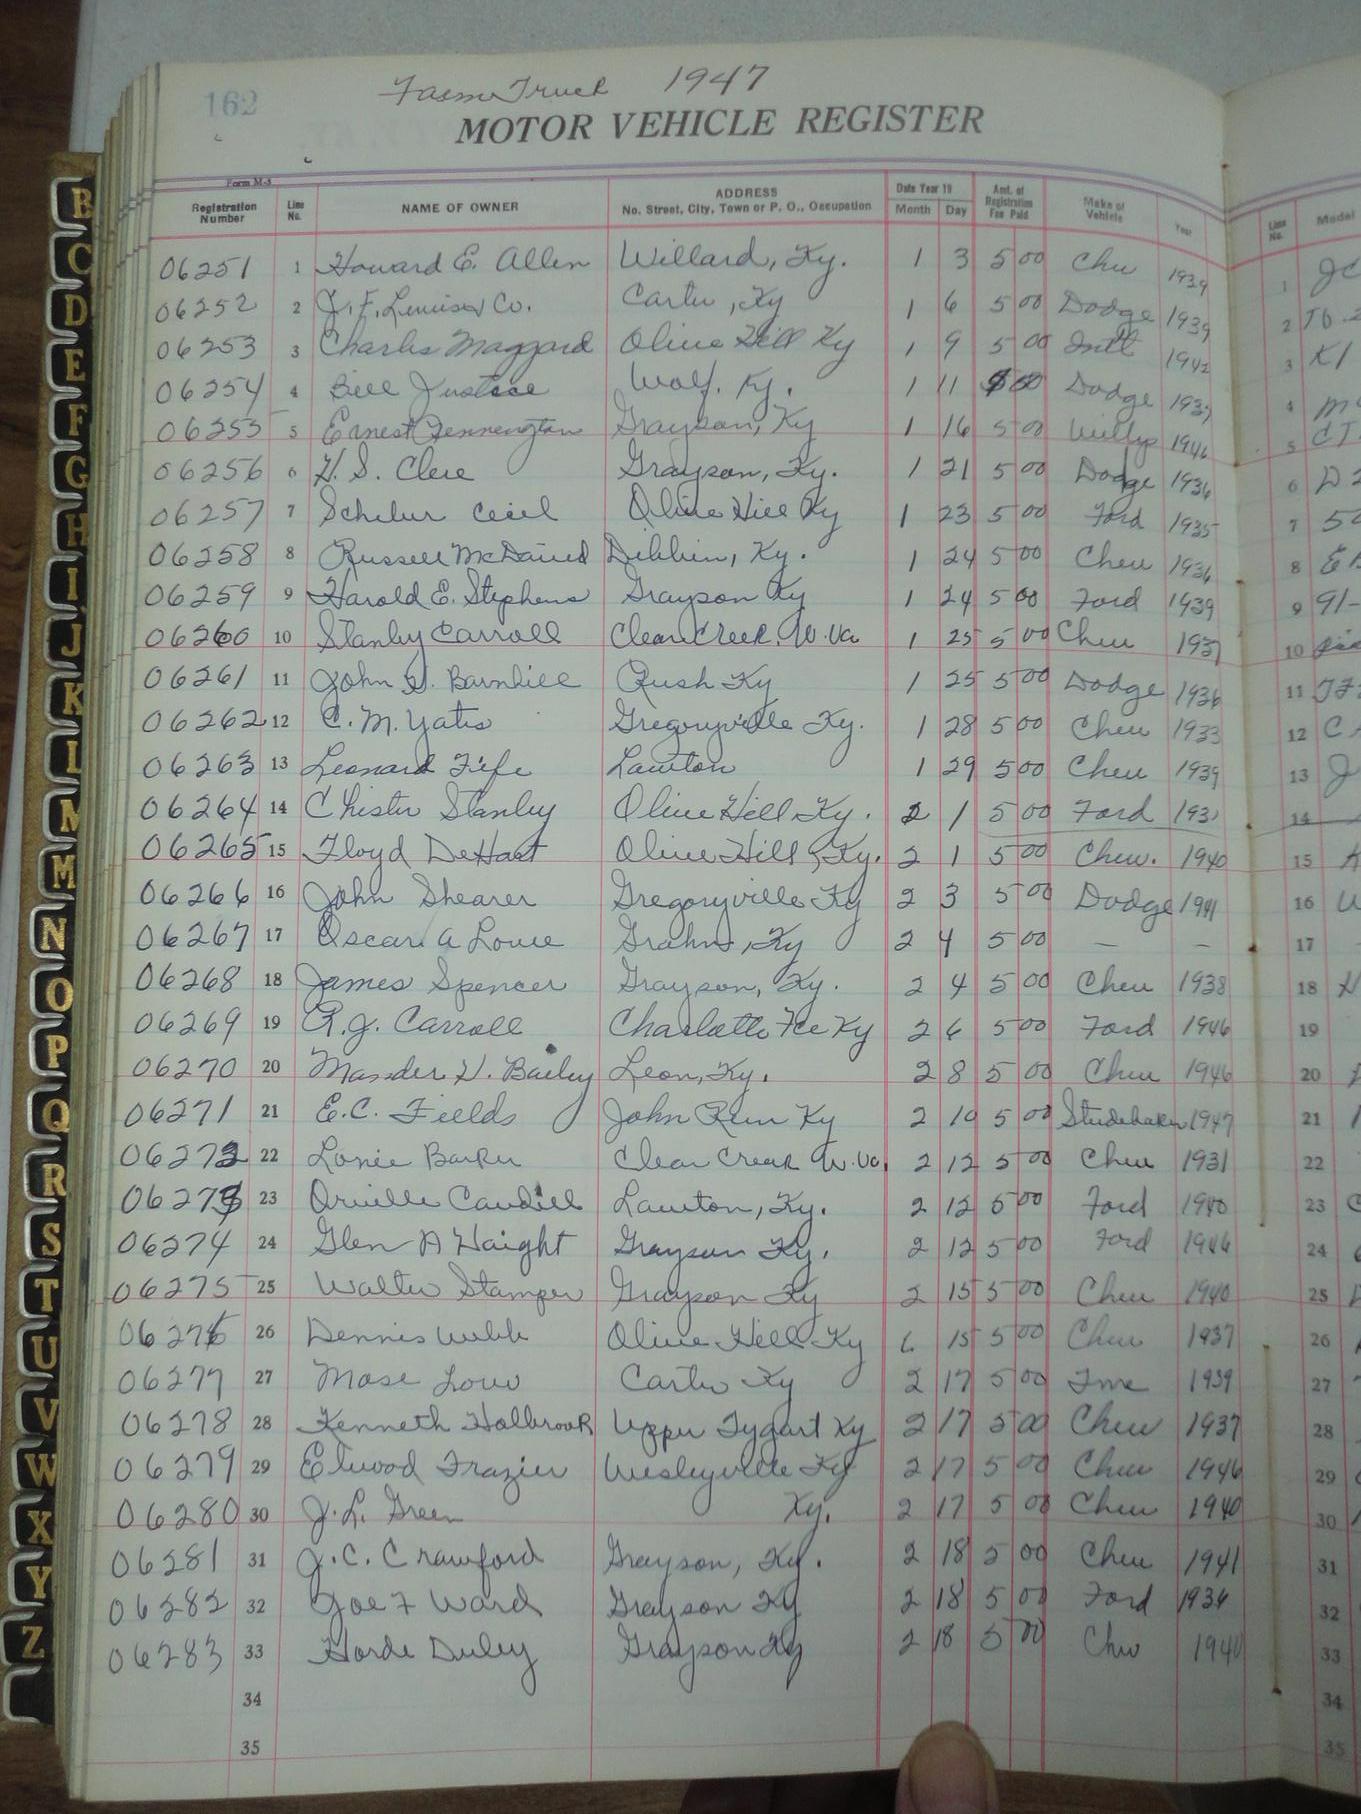 162
Farm Truck 1947
MOTOR VEHICLE REGISTER
Form M-3
Registration Number Line No. NAME OF OWNER ADDRESS No. Street, City, Town or P. O., Occupation Date Year 19 Month Day Amt. of Registration Fee Paid Make of Vehicle Year Line No. Model
06251 1 Howard E. Allen Willard, Ky. 1 3 5 00 Chev 1939 1
06252 2 J. F. Co. Carter, Ky 1 6 5 00 Dodge 1939 2
06253 3 Charles Maggard Olive Hill Ky 1 9 5 00 Intl 1942 3 K1
06254 4 Bill Justice Wolf, Ky. 1 11 Dodge 1937 4
06255 5 Ernest Pennington Grayson, Ky 1 16 5 00 Willys 1946 5 CJ
06256 6 H. S. Clere Grayson, Ky. 1 21 5 00 Dodge 1936 6 D
06257 7 Cecil Olive Hill Ky 1 23 5 00 Ford 1935 7
06258 8 Russell McDavid Ky. 1 24 5 00 Chev 1936 8
06259 9 Harold E. Stephens Grayson Ky 1 24 5 00 Ford 1939 9 91-
06260 10 Stanley Carroll Clear Creek, W. Va 1 25 5 00 Chev 1937 10
06261 11 John Barnhill Rush Ky 1 25 5 00 Dodge 1936 11
06262 12 C. M. Yates Gregoryville Ky. 1 28 5 00 Chev 1933 12
06263 13 Leonard Fife Lawton 1 29 5 00 Chev 1939 13
06264 14 Chester Stanley Olive Hill Ky. 2 1 5 00 Ford 14
06265 15 Floyd DeHart Olive Hill, Ky. 2 1 5 00 Chev. 1940 15
06266 16 John Shearer Gregoryville Ky 2 3 5 00 Dodge 1941 16
06267 17 Oscar A Lowe Grahn, Ky 2 4 5 00 — — 17
06268 18 James Spencer Grayson, Ky. 2 4 5 00 Chev 1938 18
06269 19 R. J. Carroll Charlotte Fce Ky 2 6 5 00 Ford 1946 19
06270 20 H. Bailey Leon, Ky. 2 8 5 00 Chev 1946 20
06271 21 E. C. Fields John Run Ky 2 10 5 00 Studebaker 1947 21
06272 22 Lonie Barker Clear Creek W. Va. 2 12 5 00 Chev 1931 22
06273 23 Orville Caudill Lawton, Ky. 2 12 5 00 Ford 1940 23
06274 24 Glen A Haight Grayson Ky. 2 12 5 00 Ford 1946 24
06275 25 Walter Stamper Grayson Ky 2 15 5 00 Chev 1940 25
06276 26 Dennis Webb Olive Hill Ky 15 5 00 Chev 1937 26
06277 27 Mose Lowe Carter Ky 2 17 5 00 1939 27
06278 28 Kenneth Holbrook Upper Tygart Ky 2 17 5 00 Chev 1937 28
06279 29 Elwood Frazier Wesleyville Ky 2 17 5 00 Chev 1946 29
06280 30 J. L. Green Ky. 2 17 5 00 Chev 1940 30
06281 31 J. C. Crawford Grayson, Ky. 2 18 5 00 Chev 1941 31
06282 32 Joe F Ward Grayson Ky 2 18 5 00 Ford 1936 32
06283 33 Duley Grayson Ky 2 18 5 00 Chev 1940 33
34 34
35 35
B
C
D
E
F
G
H
I
J
K
L
M
M
N
O
P
Q
R
S
T
U
V
W
X
Y
Z